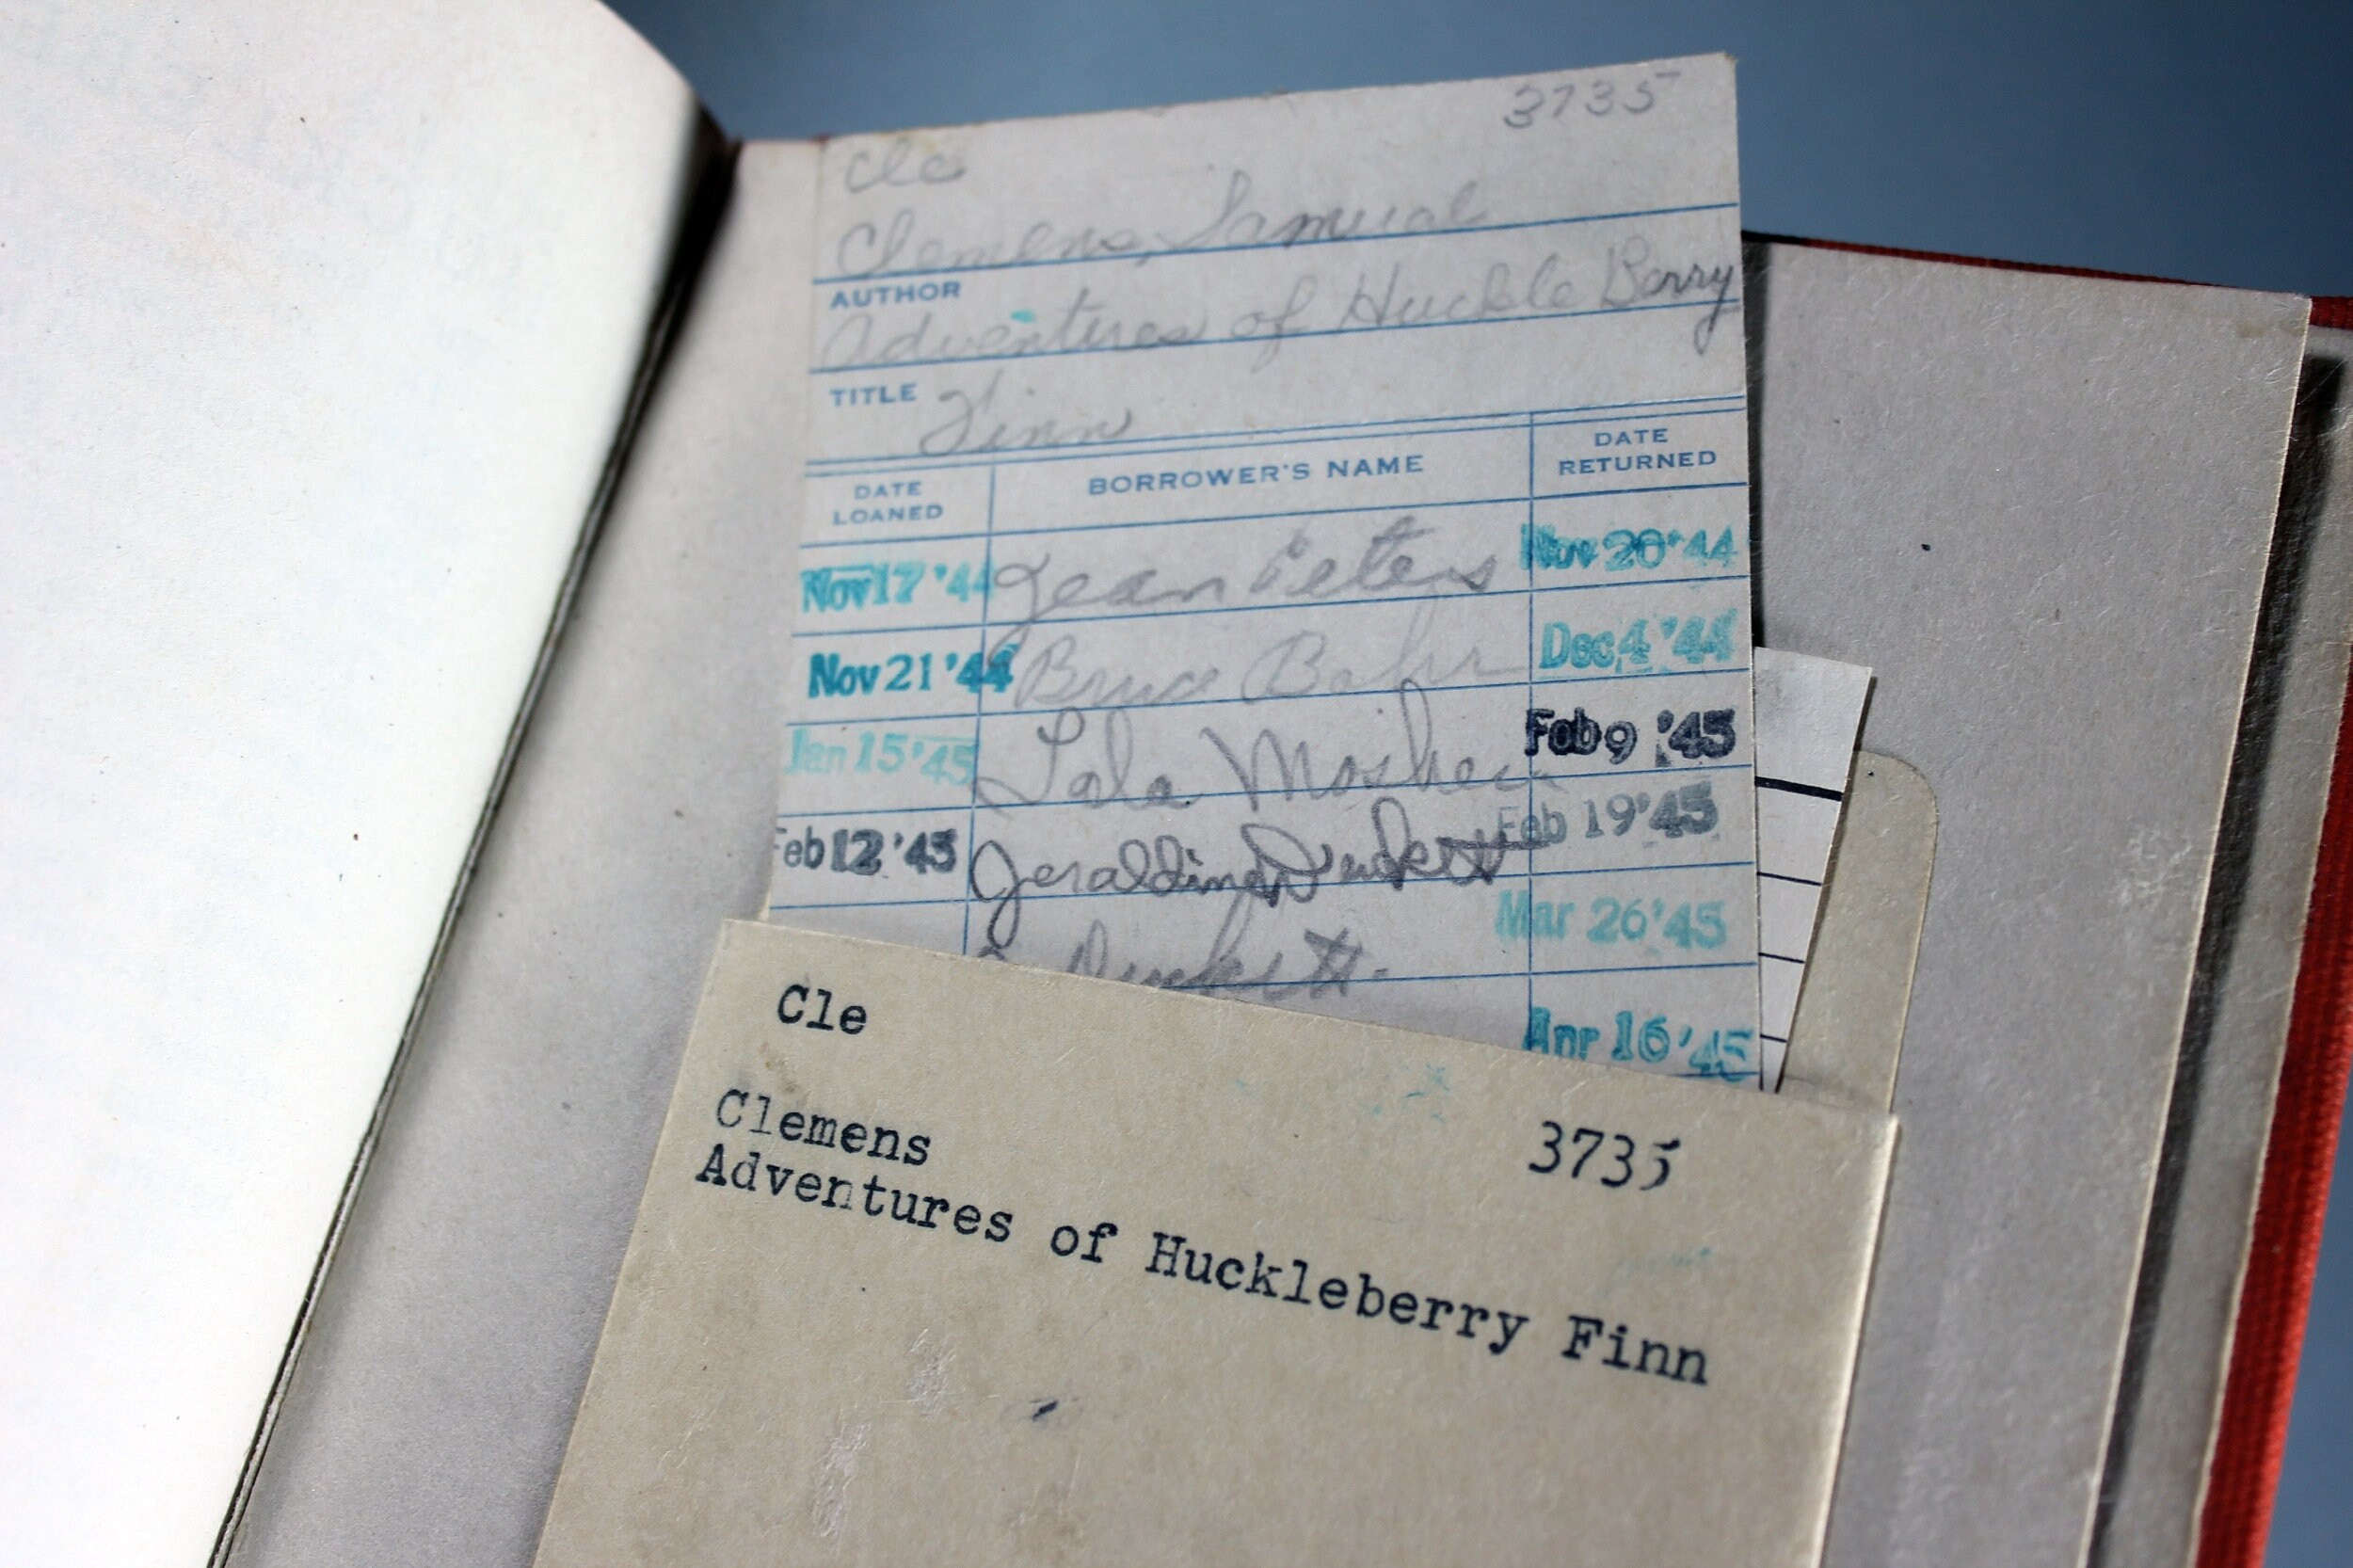 3735
Cle
Clemens, Samual
AUTHOR
Adventures of Huckle Berry
TITLE Finn
DATE LOANED BORROWER'S NAME DATE RETURNED
Nov 17 '44 Jean Peters Nov 20 '44
Nov 21 '44 Bruce Bahr Dec 4 '44
Jan 15 '45 Lola Feb 9 '45
Feb 12 '45 Geraldine Duckett Feb 19 '45
Duckett. Mar 26 '45
Apr 16 '45
Cle
Clemens 3735
Adventures of Huckleberry Finn